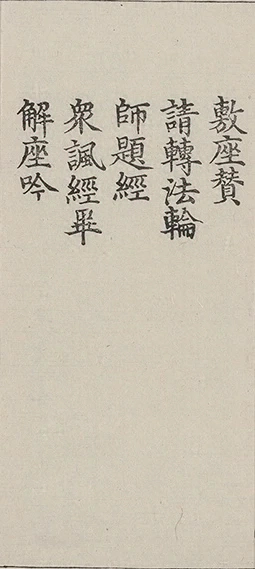 敷座赞
請轉法輪
師題經
眾諷經畢
解座吟